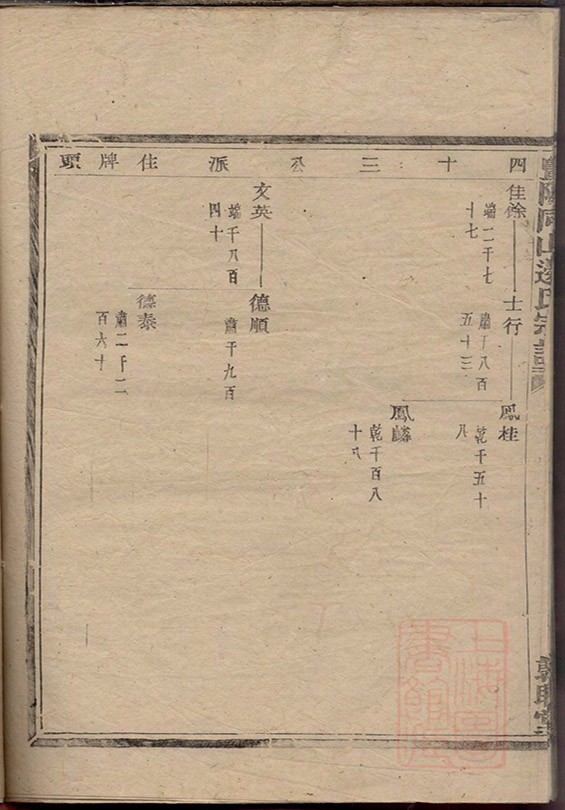 暨陽同山邊氏宗譜
四十三公派住牌頭
佳餘
端二千七
十七
士行
肅千八百
五十三
鳳桂
乾千五十
八
鳳麟
乾千百八
十八
文英
端千八百
四十
德順
肅千九百
德泰
肅二千二
百六十